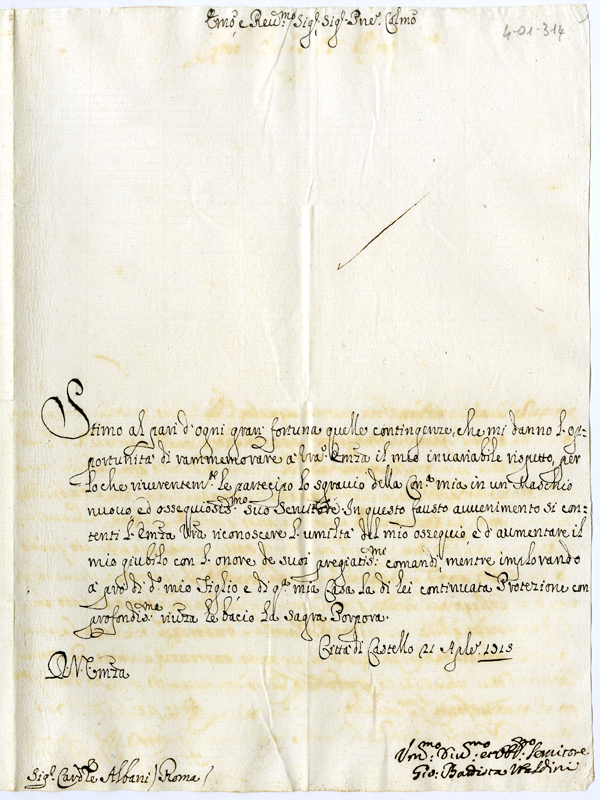 Emo, e Revmo Sigr. Sigr. Pne. Colmo
4-01-314
Stimo al pari d'ogni gran fortuna quelle contingenze, che mi danno l'op-
portunità di rammemorare a' Vra. Emza il mio invariabile rispetto, per
lo che riverentemte. le partecipo lo sgravio della Conte. mia in un Maschio
nuovo ed ossequiosismo. suo Servitore. In questo fausto avvenimento si con-
tenti l'Emza Vra riconoscere l'umiltà del mio ossequio, e d'aumentare il
mio giubilo con l'onore de suoi pregiatismi. comandi, mentre implorando
a' pro di do. mio Figlio e di qa. mia Casa la di lei continuata Protezione con
profondisma. rivrza le bacio la Sagra Porpora.
Città di Castello 21 Aple.
D. V. Emza
Umo. Divmo. et Obbo. Servitore
Gio: Battista
Sigr. Cardle Albani / Roma /